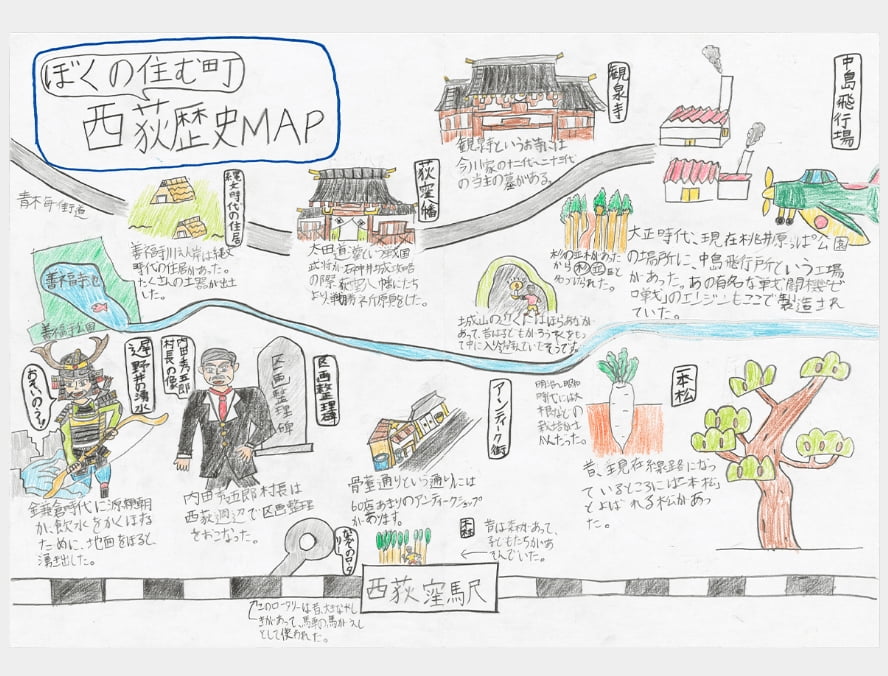 ぼくの住む町
西荻歴史MAP
観泉寺
観泉寺というお寺には
今川家の十二代〜二十三代
の当主の墓がある。
中島飛行場
青木毎街道
縄文時代の住居
善福寺川沿岸は縄文
時代の住居があった。
たくさんの土器が出土
した。
荻窪八幡
太田道灌という戦国
武将が石神井城攻略
の際、荻窪八幡にたち
より戦勝を祈願をした。
杉の並木があった
から杉並区と
大正時代、現在桃井原っぱ公園
の場所に、中島飛行所という工場
があった。あの有名な戦闘機ゼ
ロ戦のエンジンもここで製造され
ていた。
善福寺池
善福寺公園
城山のふくにはほらあなが
あって、昔は子どもがろうそくをもっ
て中に入り遊んでいたそうです。
おそいのう!!
遅野井の湧水
鎌倉時代に源頼朝
が、飲水をかくほする
ために、地面をほると
湧き出した。
内田秀五郎
村長の像
区画整理碑
区画整理碑
内田秀五郎村長は
西荻周辺で区画整理
をおこなった。
アンティーク街
骨董通りという通りには
60店あまりのアンティークショップ
があります。
明治〜昭和
時代には大
根などの
栽培がさ
かんだった。
一本松
昔、現在線路になっ
ているところには「一本松」
とよばれる松があっ
た。
なぞのロータリー
このロータリーは昔、大きなやし
きがあって、馬車の馬がえし
として使われた。
昔は森があって、
子どもたちがあ
そんでいた。
西荻窪駅